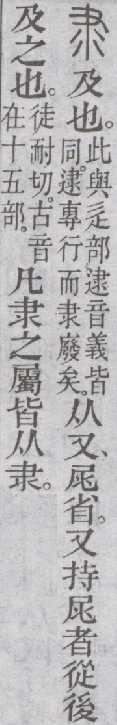 隶及也。此與辵部逮音義皆同。逮專行而隶廢矣。从又、𡱈省。又持𡱈者從後
及之也。徒耐切。古音在十五部。凡隶之屬皆从隶。